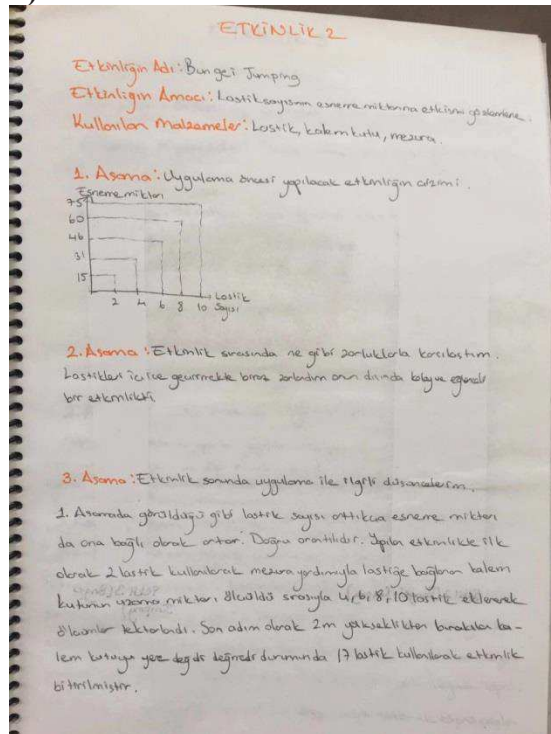 ETKİNLİK 2
Etkinliğin Adı: Bungei Jumping
Etkinliğin Amacı: Lastik sayısının esneme miktarına etkisini gözlemleme.
Kullanılan Malzemeler: Lastik, kalem kutu, mezura.
1. Aşama: Uygulama öncesi yapılacak etkinliğin çizimi.
Esneme miktarı
75
60
46
31
15
2 4 6 8 10 Lastik
Sayısı
2. Aşama: Etkinlik sırasında ne gibi zorluklarla karşılaştım.
Lastikleri iç içe geçirmekte biraz zorlandım onun dışında kolay ve eğlenceli
bir etkinlikti
3. Aşama: Etkinlik sonunda uygulama ile ilgili düşüncelerim.
1. Aşamada görüldüğü gibi lastik sayısı arttıkça esneme miktarı
da ona bağlı olarak artar. Doğru orantılıdır. Yapılan etkinlikte ilk
olarak 2 lastik kullanılarak mezura yardımıyla lastiğe bağlanan kalem
kutunun uzama miktarı ölçüldü sırasıyla 4, 6, 8, 10 lastik eklenerek
ölçümler tekrarlandı. Son adım olarak 2m yükseklikten bırakılan ka-
lem kutuyu yere değdi değmedi durumunda 17 lastik kullanılarak etkinlik
bitirilmiştir.